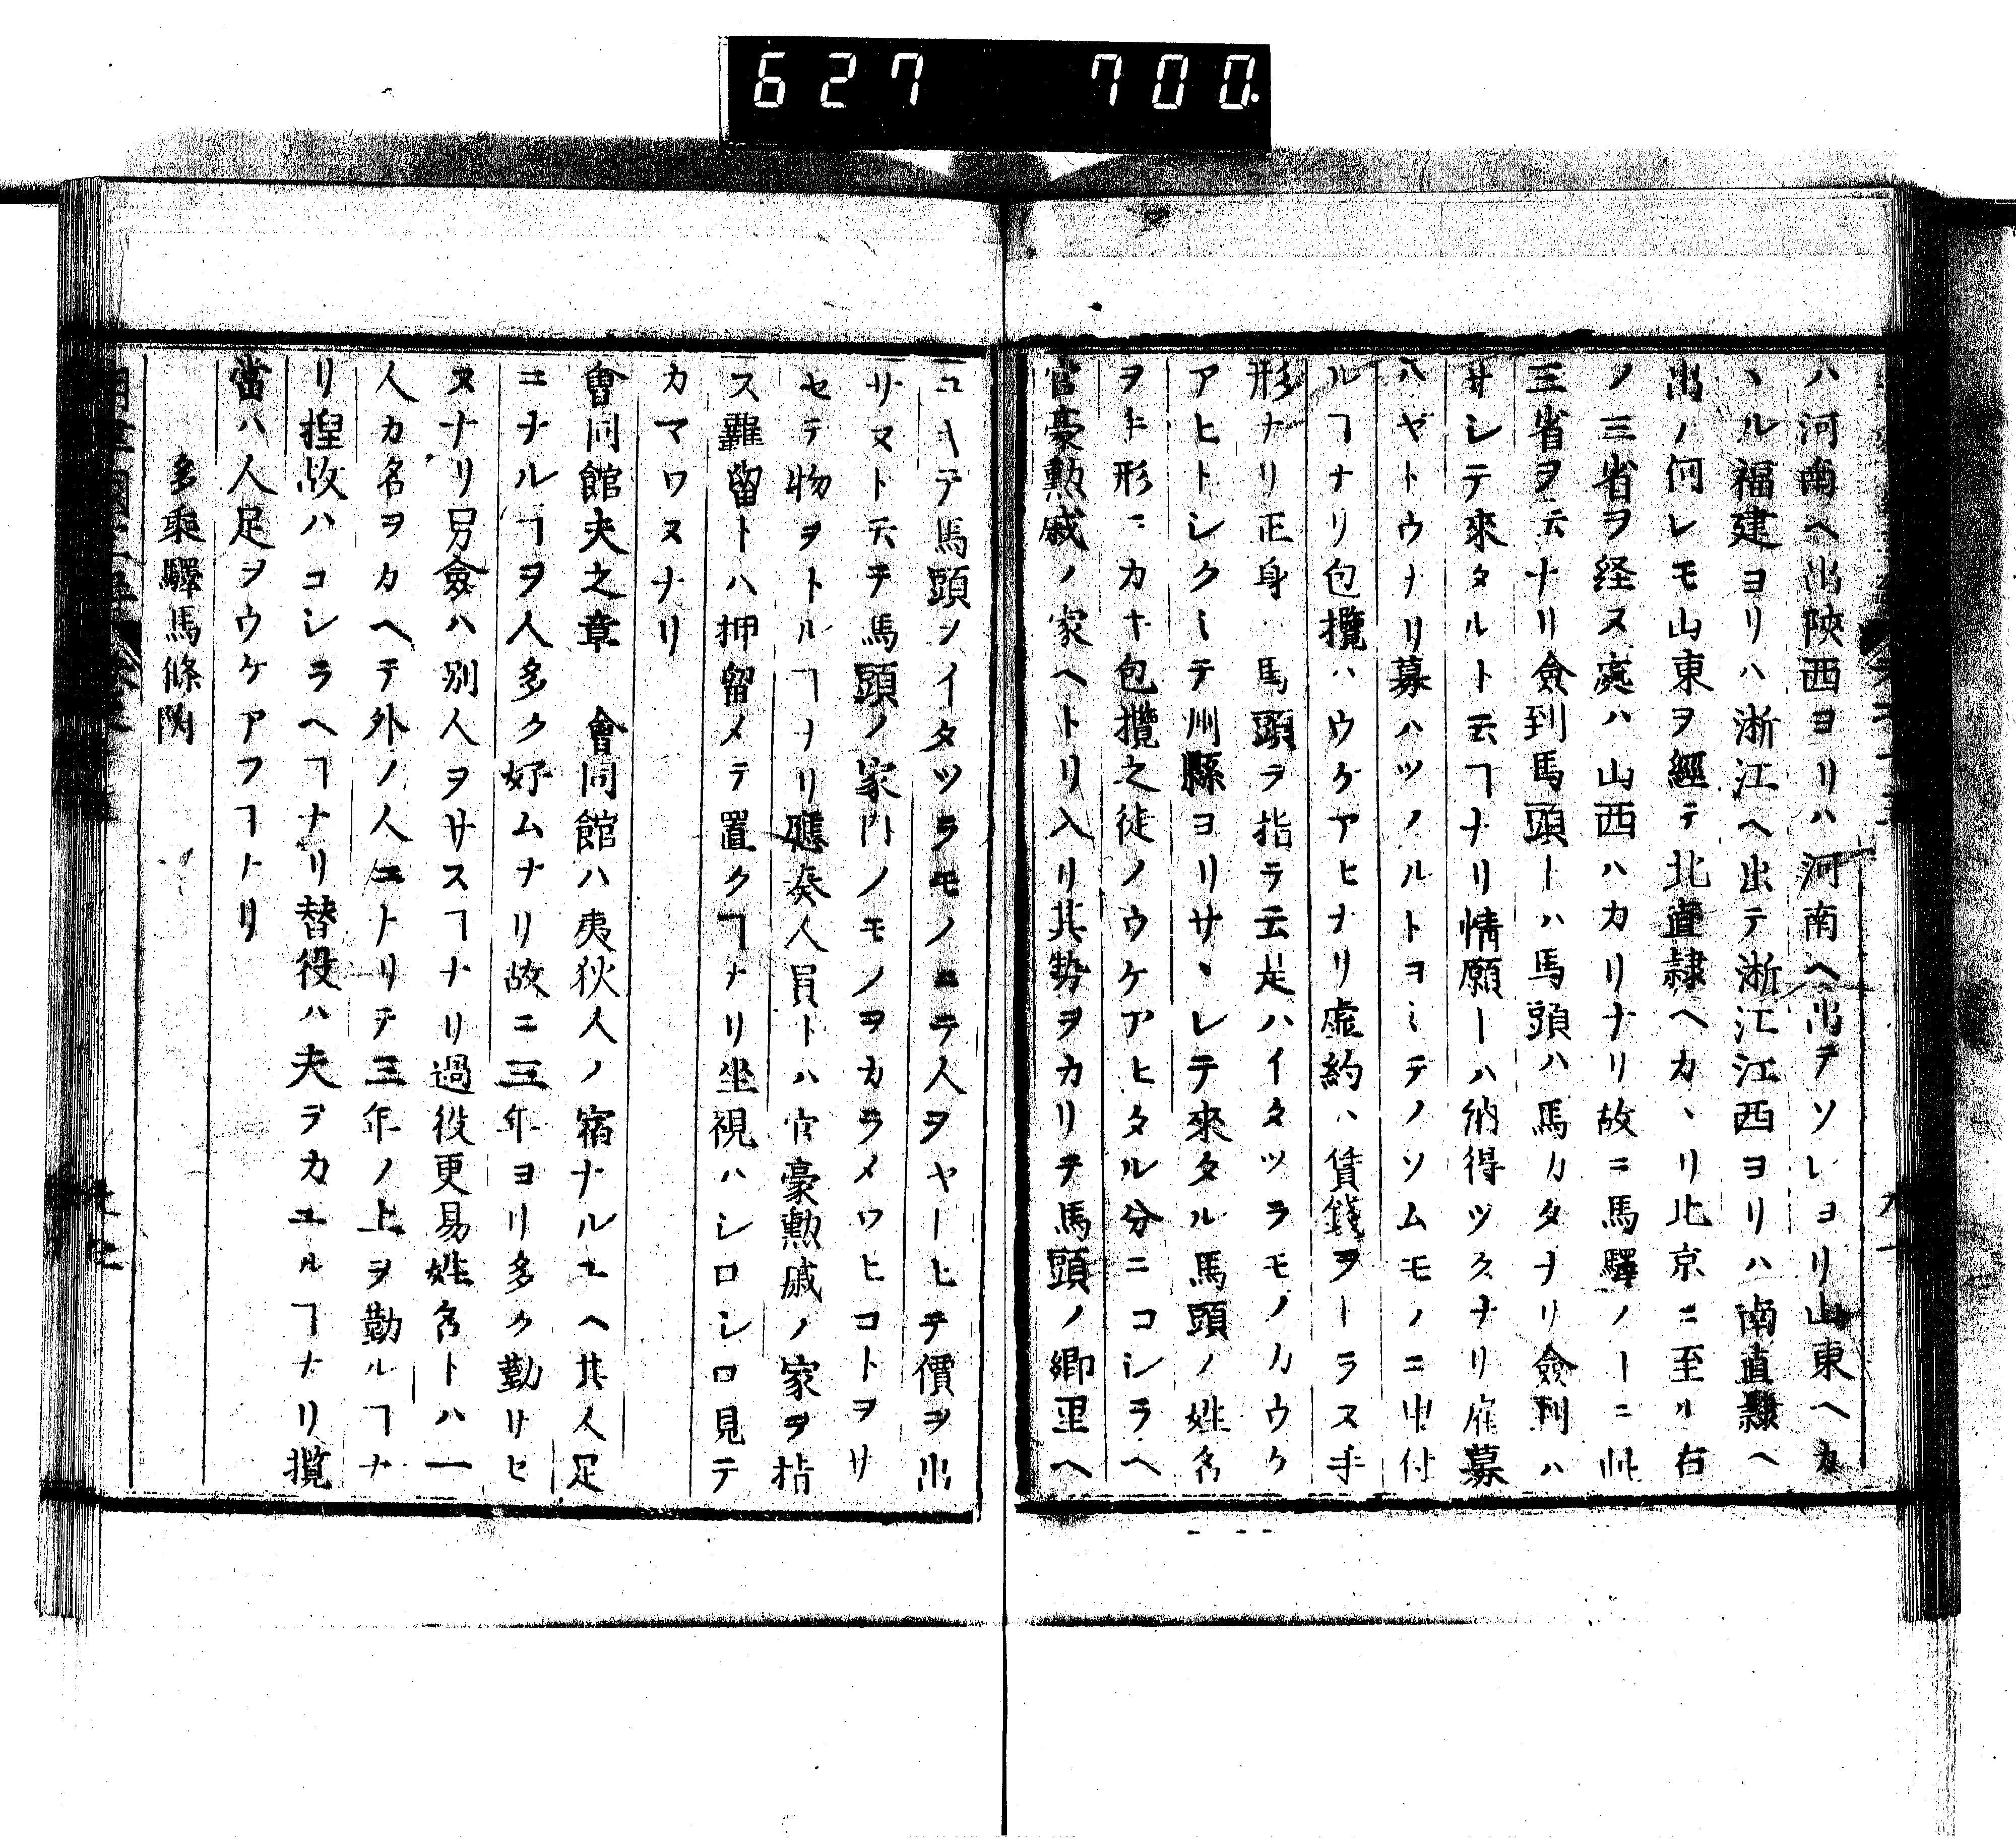 627 700
ハ河南ヘ出陝西ヨリハ河南ヘ出テソレヨリ山東ヘカ
ヽル福建ヨリハ淅江ヘ出テ淅江江西ヨリハ南直隷ヘ
出ノ何レモ山東ヲ經テ北直隷ヘカヽリ北京ニ至ル右
ノ三省ヲ経ス處ハ山西ハカリナリ故ニ馬驛ノ一ニ此
三省ヲ云ナリ僉到馬頭トハ馬頭ハ馬カタナリ僉到ハ
サシテ來タルト云ヿナリ情願トハ納得ツクナリ雇募
ハヤトウナリ募ハツノルトヨミテノソムモノニ申付
ルヿナリ包攬ハウケアヒナリ虚約ハ賃錢ヲトラス手
形ナリ正身馬頭ヲ指ラ云是ハイタツラモノカウケ
アヒトシクミテ州縣ヨリサヽレテ來タル馬頭ノ姓名
ヲ手形ニカキ包攬之徒ノウケアヒタル分ニコシラヘ
官豪勲戚ノ家ヘトリ入リ其勢ヲカリテ馬頭ノ郷里ヘ
ユキテ馬頭ノイタツラモノニテ人ヲヤトヒテ價ヲ出
サヌト云テ馬頭ノ家内ノモノヲカラメワヒコトヲサ
セテ物ヲトルヿナリ應奏人員トハ官豪勲戚ノ家ヲ指
ス羈留トハ押留メテ置クヿナリ坐視ハシロシロ見テ
カマワヌナリ
會同館夫之章 會同館ハ夷狄人ノ宿ナルユヘ其人足
ニナルヿヲ人多ク好ムナリ故ニ三年ヨリ多ク勤サセ
ヌナリ另僉ハ別人ヲサスヿナリ過役更易姓名トハ一
人カ名ヲカヘテ外ノ人ニナリテ三年ノ上ヲ勤ルヿナ
リ捏故ハコシラヘヿナリ替役ハ夫ヲカエルヿナリ攬
當ハ人足ヲウケアフヿナリ
多乘驛馬條附